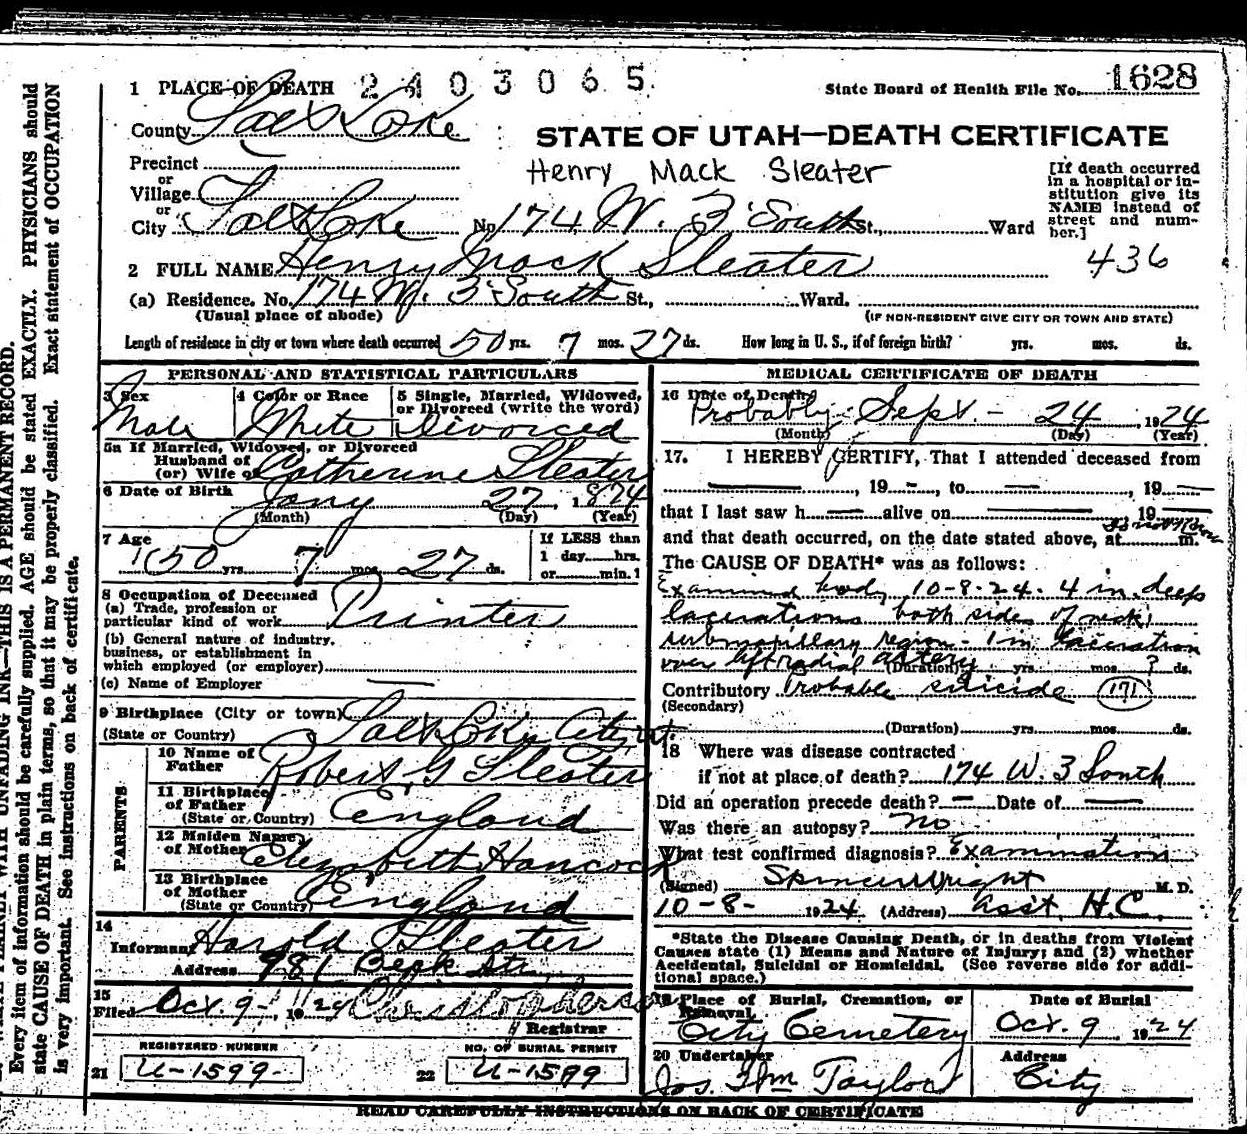 1 PLACE OF DEATH 2403065
State Board of Health File No. 1628
County Salt Lake
STATE OF UTAH—DEATH CERTIFICATE
Precinct
Henry Mack Sleater
[If death occurred in a hospital or institution give its NAME instead of street and number.]
or
Village
or
City Salt Lake No. 174 W. 3 South St., Ward
436
2 FULL NAME Henry Mack Sleater
(a) Residence. No. 174 W. 3 South St., Ward.
(Usual place of abode) (IF NON-RESIDENT GIVE CITY OR TOWN AND STATE)
Length of residence in city or town where death occurred 50 yrs. 7 mos. 27 ds. How long in U. S., if of foreign birth? yrs. mos. ds.
PERSONAL AND STATISTICAL PARTICULARS
3 Sex
Male
4 Color or Race
White
5 Single, Married, Widowed, or Divorced (write the word)
Divorced
5a If Married, Widowed, or Divorced
Husband of
(or) Wife of Catherine Sleater
6 Date of Birth Jany 27, 1874
(Month) (Day) (Year)
7 Age
50 yrs. 7 mos. 27 ds.
If LESS than
1 day hrs.
or min.
8 Occupation of Deceased
(a) Trade, profession or
particular kind of work Printer
(b) General nature of industry,
business, or establishment in
which employed (or employer)
(c) Name of Employer
9 Birthplace (City or town) Salt Lake City, Ut.
(State or Country)
PARENTS
10 Name of
Father Robert G Sleater
11 Birthplace
of Father
(State or Country) England
12 Maiden Name
of Mother Elizabeth Hancock
13 Birthplace
of Mother
(State or Country) England
14
Informant Harold Sleater
Address 981
15
Filed Oct. 9, 1924
Registrar
REGISTERED NUMBER
21 U-1599
NO. OF BURIAL PERMIT
22 U-1599
MEDICAL CERTIFICATE OF DEATH
16 Date of Death
Probably Sept - 24, 1924
(Month) (Day) (Year)
17. I HEREBY CERTIFY, That I attended deceased from
, 19 , to , 19
that I last saw h alive on 19
and that death occurred, on the date stated above, at m.
The CAUSE OF DEATH* was as follows:
Examined body 10-8-24. 4 in. deep
lacerations both sides of neck,
submaxillary region - 1 in laceration
over left radial artery (Duration) yrs. mos. ? ds.
Contributory Probable suicide (171)
(Secondary)
(Duration) yrs. mos. ds.
18 Where was disease contracted
if not at place of death? 174 W. 3 South
Did an operation precede death? — Date of —
Was there an autopsy? no
What test confirmed diagnosis? Examination
(Signed) Spencer Wright M. D.
10-8- 1924 (Address) Asst. H.C.
*State the Disease Causing Death, or in deaths from Violent
Causes state (1) Means and Nature of Injury; and (2) whether
Accidental, Suicidal or Homicidal. (See reverse side for addi-
tional space.)
19 Place of Burial, Cremation, or
Removal
City Cemetery
Date of Burial
Oct. 9 1924
20 Undertaker
Jos. Wm Taylor
Address
City
READ CAREFULLY INSTRUCTIONS ON BACK OF CERTIFICATE
WITH UNFADING INK—THIS IS A PERMANENT RECORD.
Every item of information should be carefully supplied. AGE should be stated EXACTLY. PHYSICIANS should
state CAUSE OF DEATH in plain terms, so that it may be properly classified. Exact statement of OCCUPATION
is very important. See instructions on back of certificate.